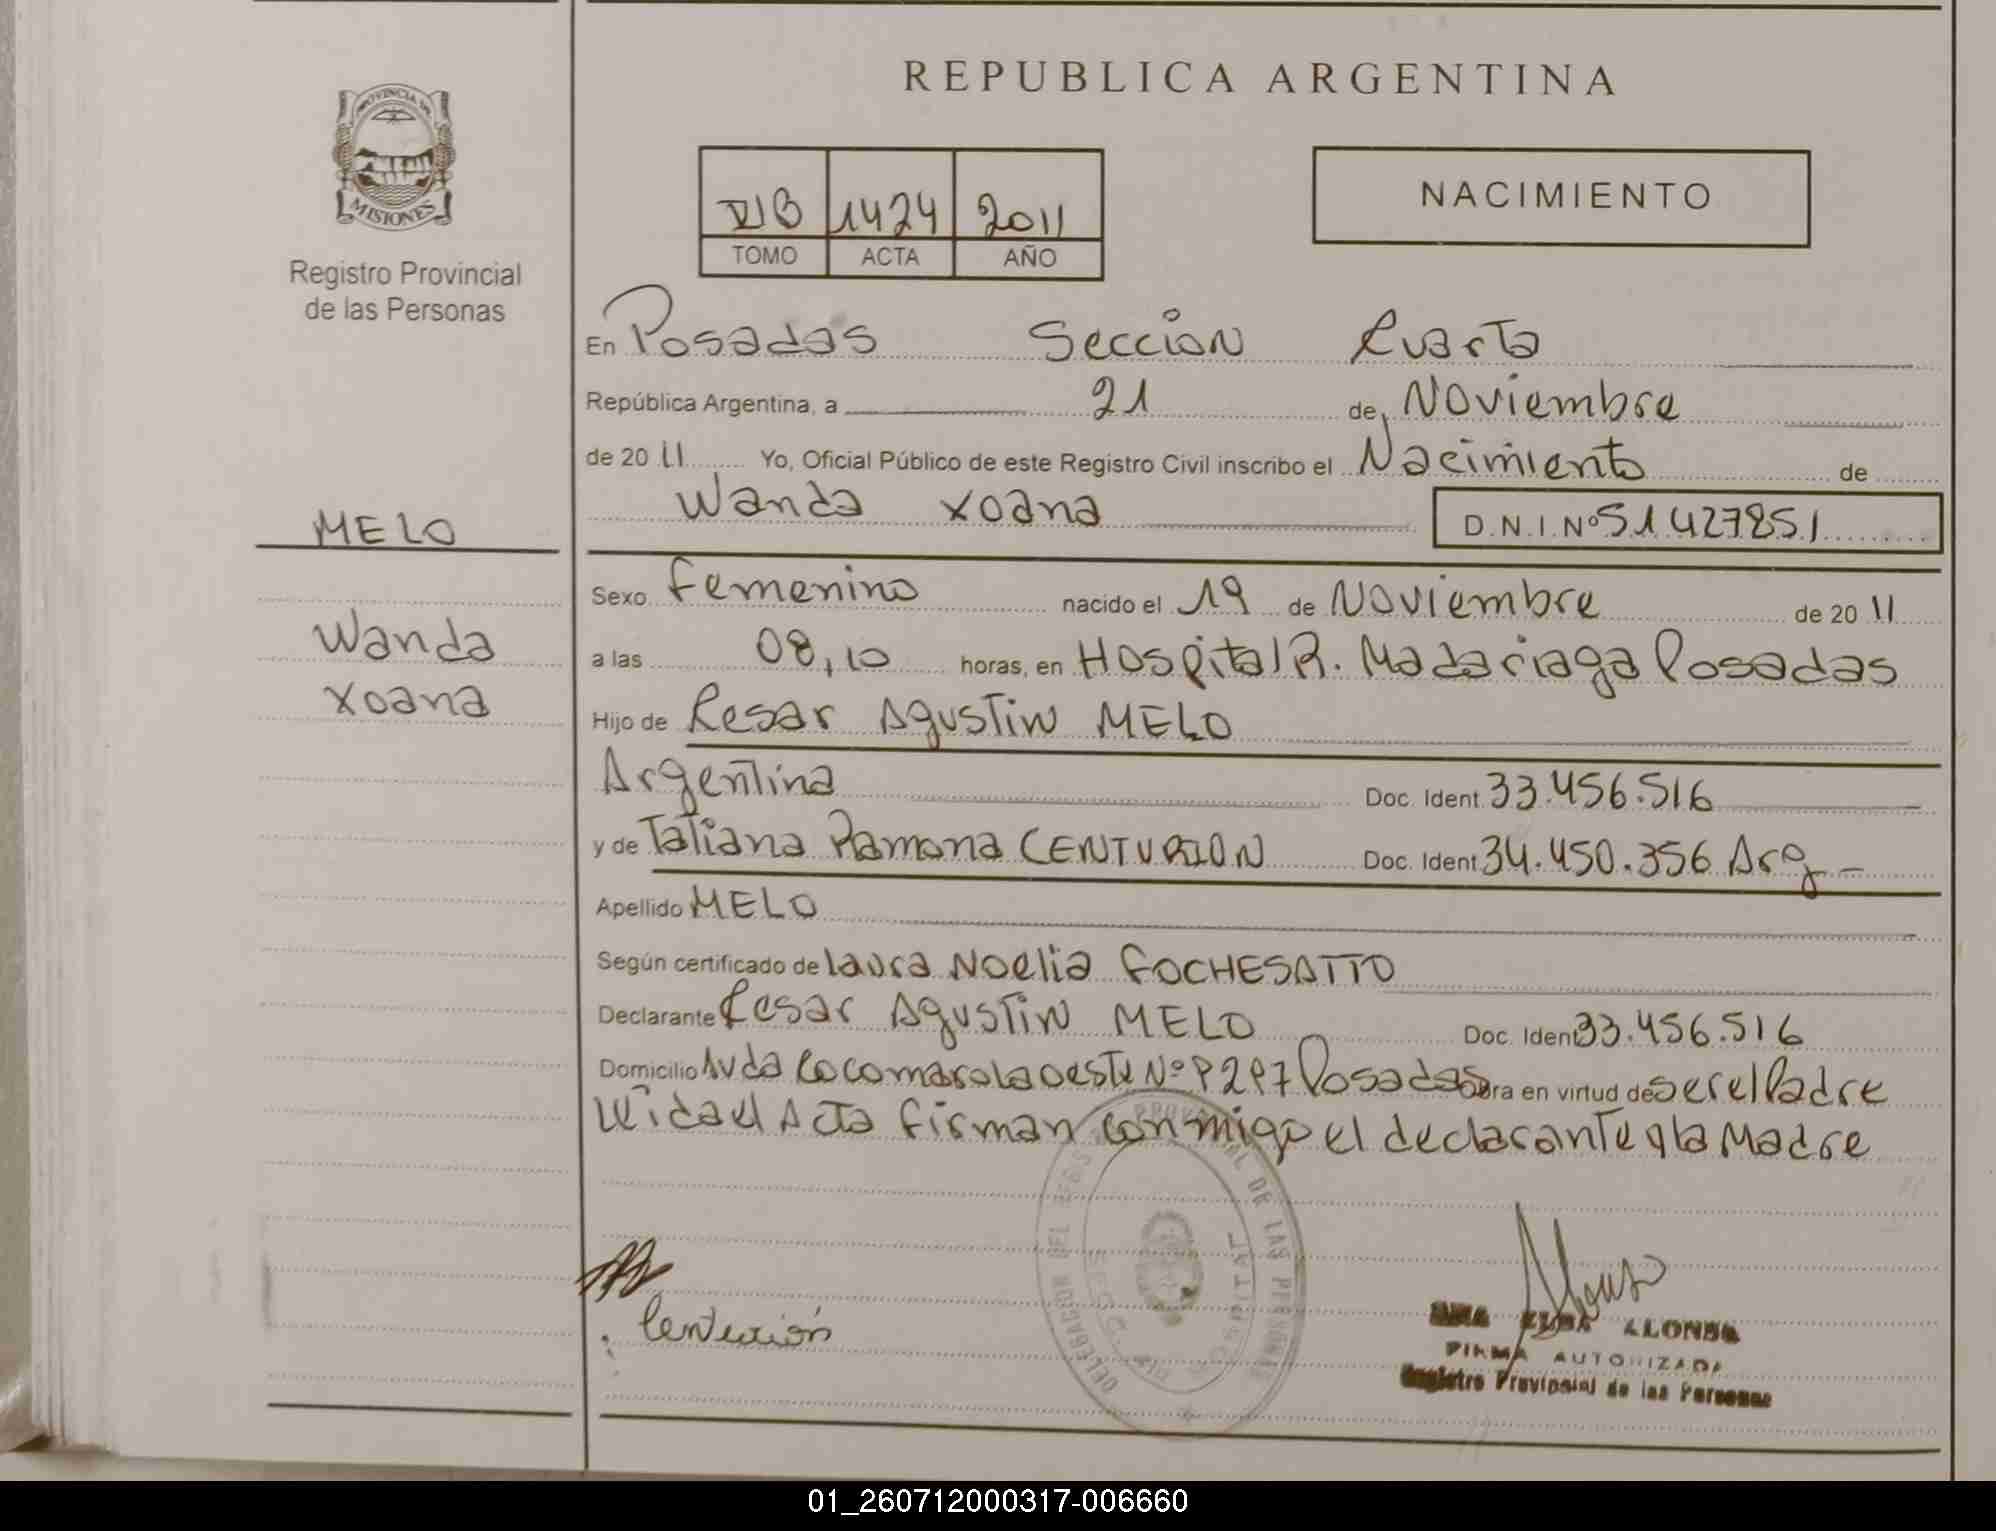 REPUBLICA ARGENTINA
PROVINCIA DE
MISIONES
Registro Provincial
de las Personas
VIB 1424 2011
TOMO ACTA AÑO
NACIMIENTO
En Posadas Sección Cuarta
República Argentina, a 21 de Noviembre
de 2011 Yo, Oficial Público de este Registro Civil inscribo el Nacimiento de
Wanda Xoana D.N.I.Nº 51427851
MELO
Wanda
Xoana
Sexo Femenino nacido el 19 de Noviembre de 2011
a las 08,10 horas, en Hospital R. Madariaga Posadas
Hijo de Cesar Agustin MELO
Argentina Doc. Ident. 33.456.516
y de Tatiana Ramona CENTURION Doc. Ident 34.450.356 Arg
Apellido MELO
Según certificado de Laura Noelia FOCHESATTO
Declarante Cesar Agustin MELO Doc. Ident 33.456.516
Domicilio Avda Cocomarola oeste Nº Posadas Obra en virtud de ser el Padre
Leida el Acta firman conmigo el declarante y la Madre
DELEGACION DEL REGISTRO PROVINCIAL DE LAS PERSONAS
Centurión
Alonso
ELBA ALONSO
FIRMA AUTORIZADA
Registro Provincial de las Personas
01_260712000317-006660